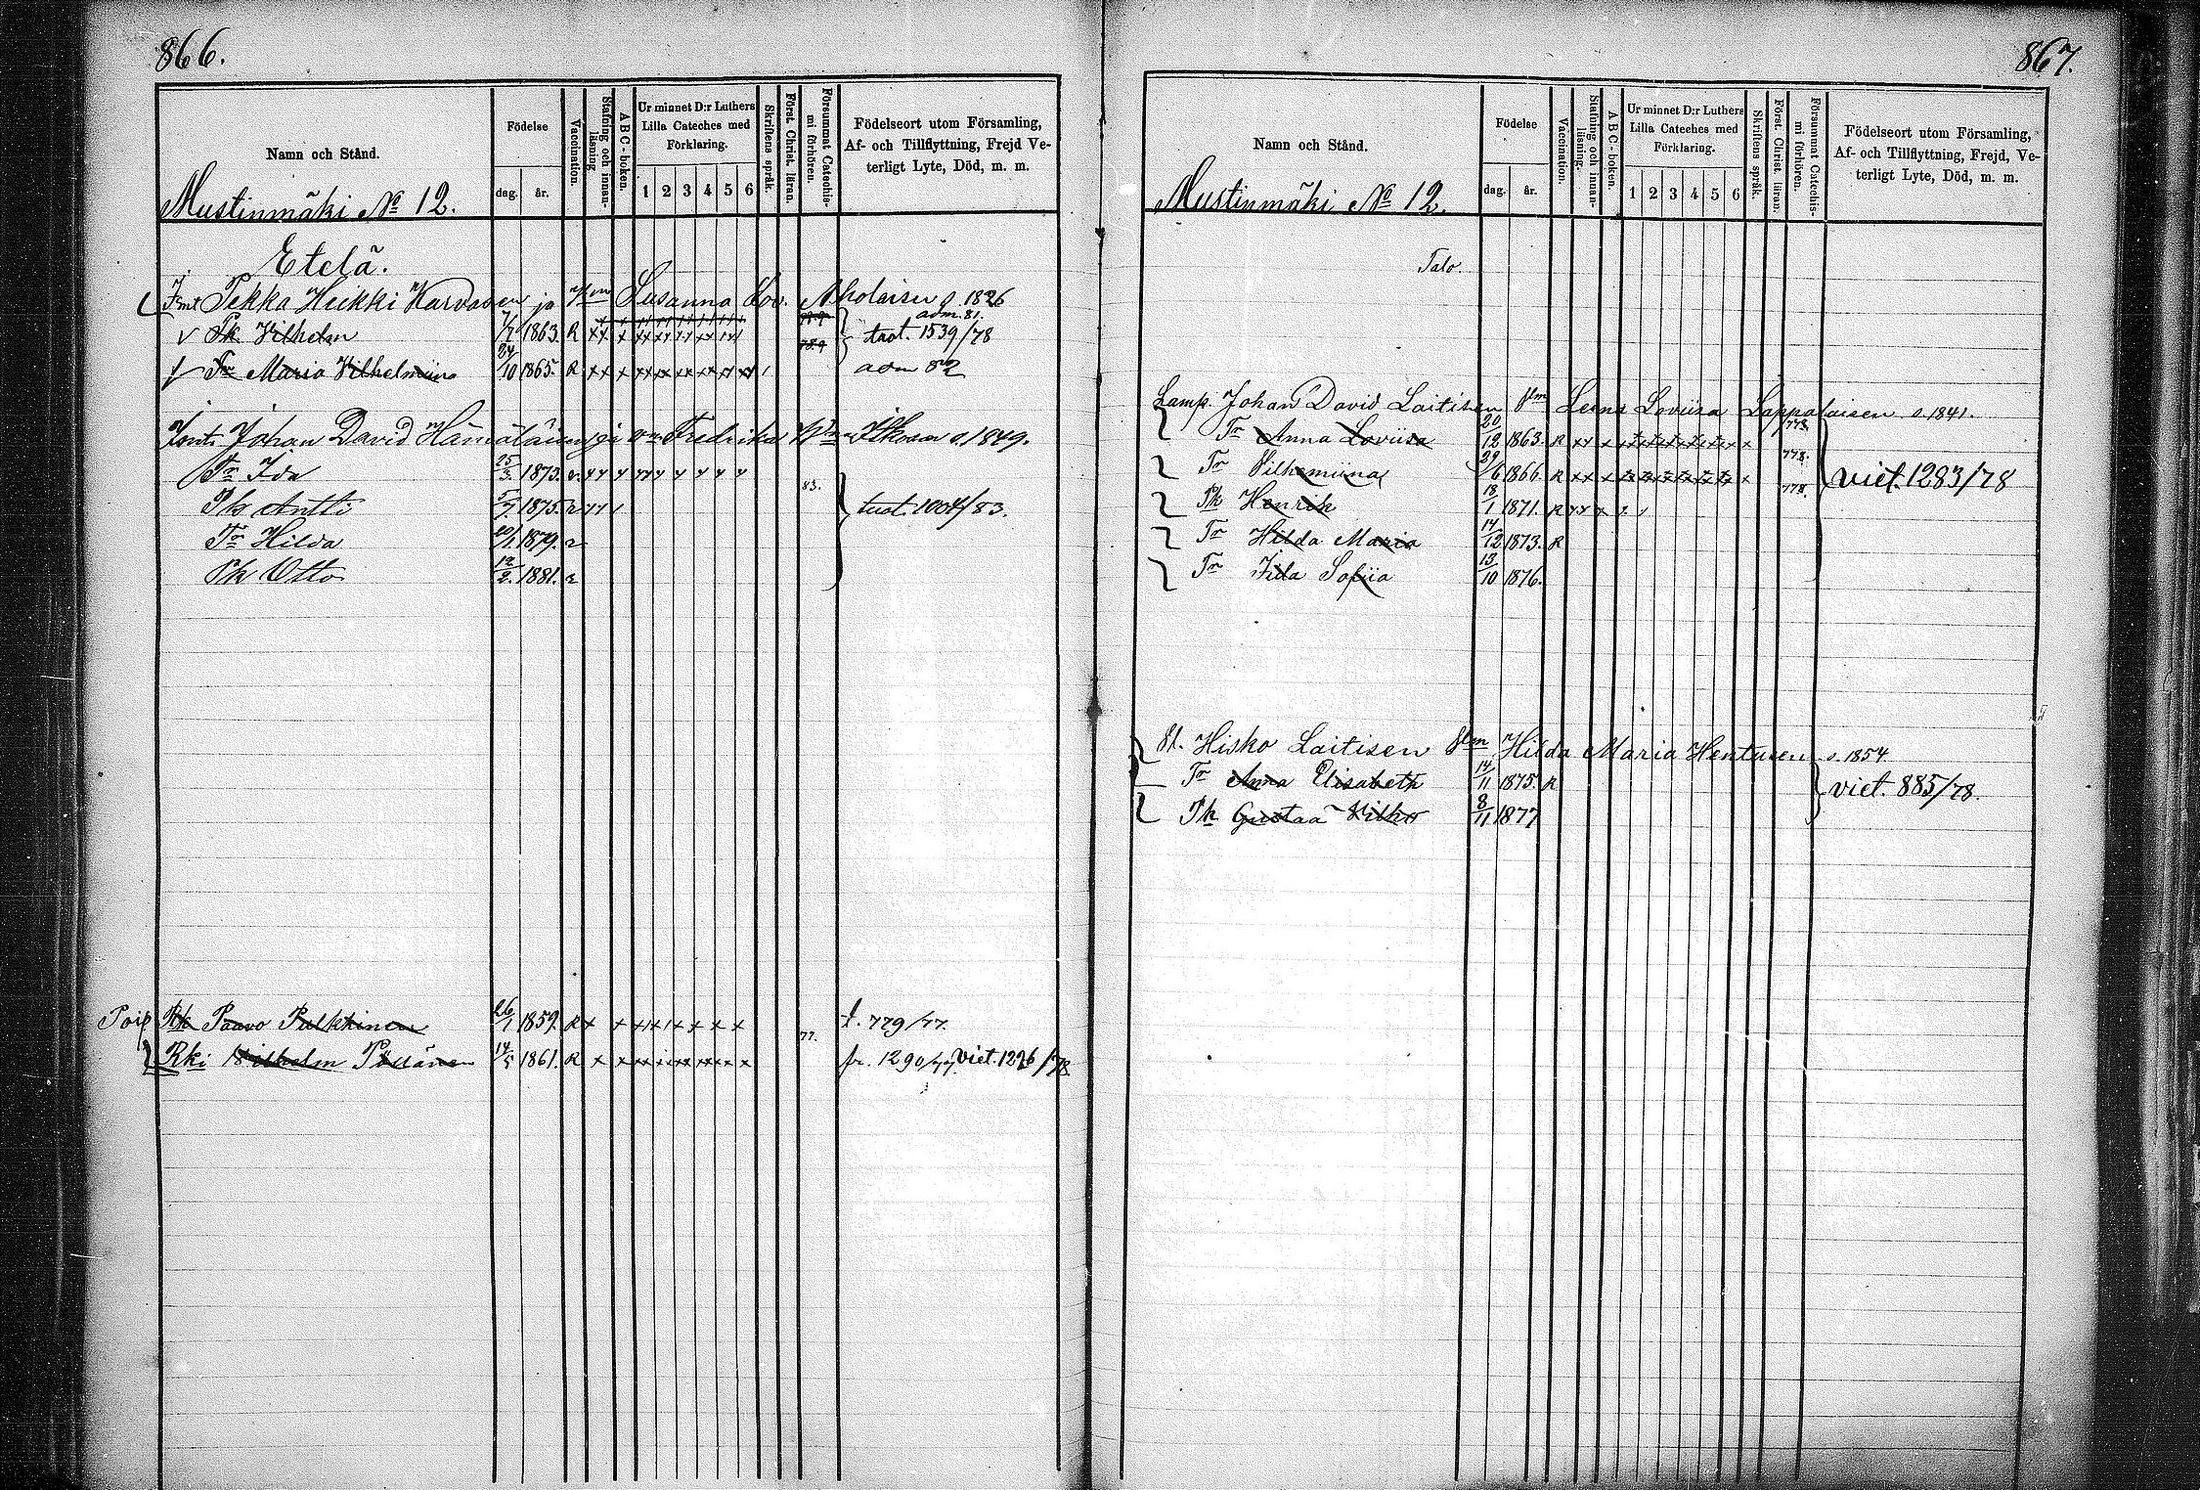 866.
Namn och Stånd.
Födelse
dag. år.
Vaccination.
Stafning och innan-läsning
A B C-boken.
Ur minnet D:r Luthers Lilla Cateches med Förklaring.
1 2 3 4 5 6
Skriftens språk.
Först. Christ. läran.
Försummat Catechis-mi förhören.
Födelseort utom Församling, Af- och Tillflyttning, Frejd Ve-terligt Lyte, Död, m. m.
Mustinmäki No 12.
Etelä.
Pekka Heikki Karvosen ja Vm Susanna Lov. Aholaisen s. 1826
Pk Vilhelm 7/7 1863. R adm. 81. tuot. 1539/78
Tr Maria Vilhelmiina 24/10 1865. R adm 82
Johan David Hämäläisen ja Fredrika Itkosen s. 1849.
Tr Ida 25/3 1873.
Pk Antti 5/7 1875. 83. tuot 1004/83.
Tr Hilda 1879.
Pk Otto 12/2 1881.
Pois Rk Paavo Pulkkinen 26/1 1859. R t. 779/77.
Rki Vilhelm 14/5 1861. R 77. fr. 1290/77. viet. 1296/78
867.
Namn och Stånd.
Födelse
dag. år.
Vaccination.
Stafning och innan-läsning.
A B C-boken.
Ur minnet D:r Luthers Lilla Cateches med Förklaring.
1 2 3 4 5 6
Skriftens språk.
Först. Christ. läran.
Försummat Catechis-mi förhören.
Födelseort utom Församling, Af- och Tillflyttning, Frejd, Ve-terligt Lyte, Död, m. m.
Mustinmäki No 12.
Talo.
Lamp. Johan David Laitisen Vm Leena Loviisa Lappalaisen s. 1841.
Tr Anna Loviisa 20/12 1863. R 778.
Tr Vilhemiina 29/6 1866. R 778. viet. 1283/78
Pk Henrik 18/1 1871. R 778.
Tr Hilda Maria 14/12 1873. R
Tr Iida Sofiia 13/10 1876.
Hisko Laitisen Vm Hilda Maria Hentusen s. 1854
Tr Anna Elisabeth 14/11 1875. R viet. 885/78.
Pk Gustaa Vilho 8/11 1877